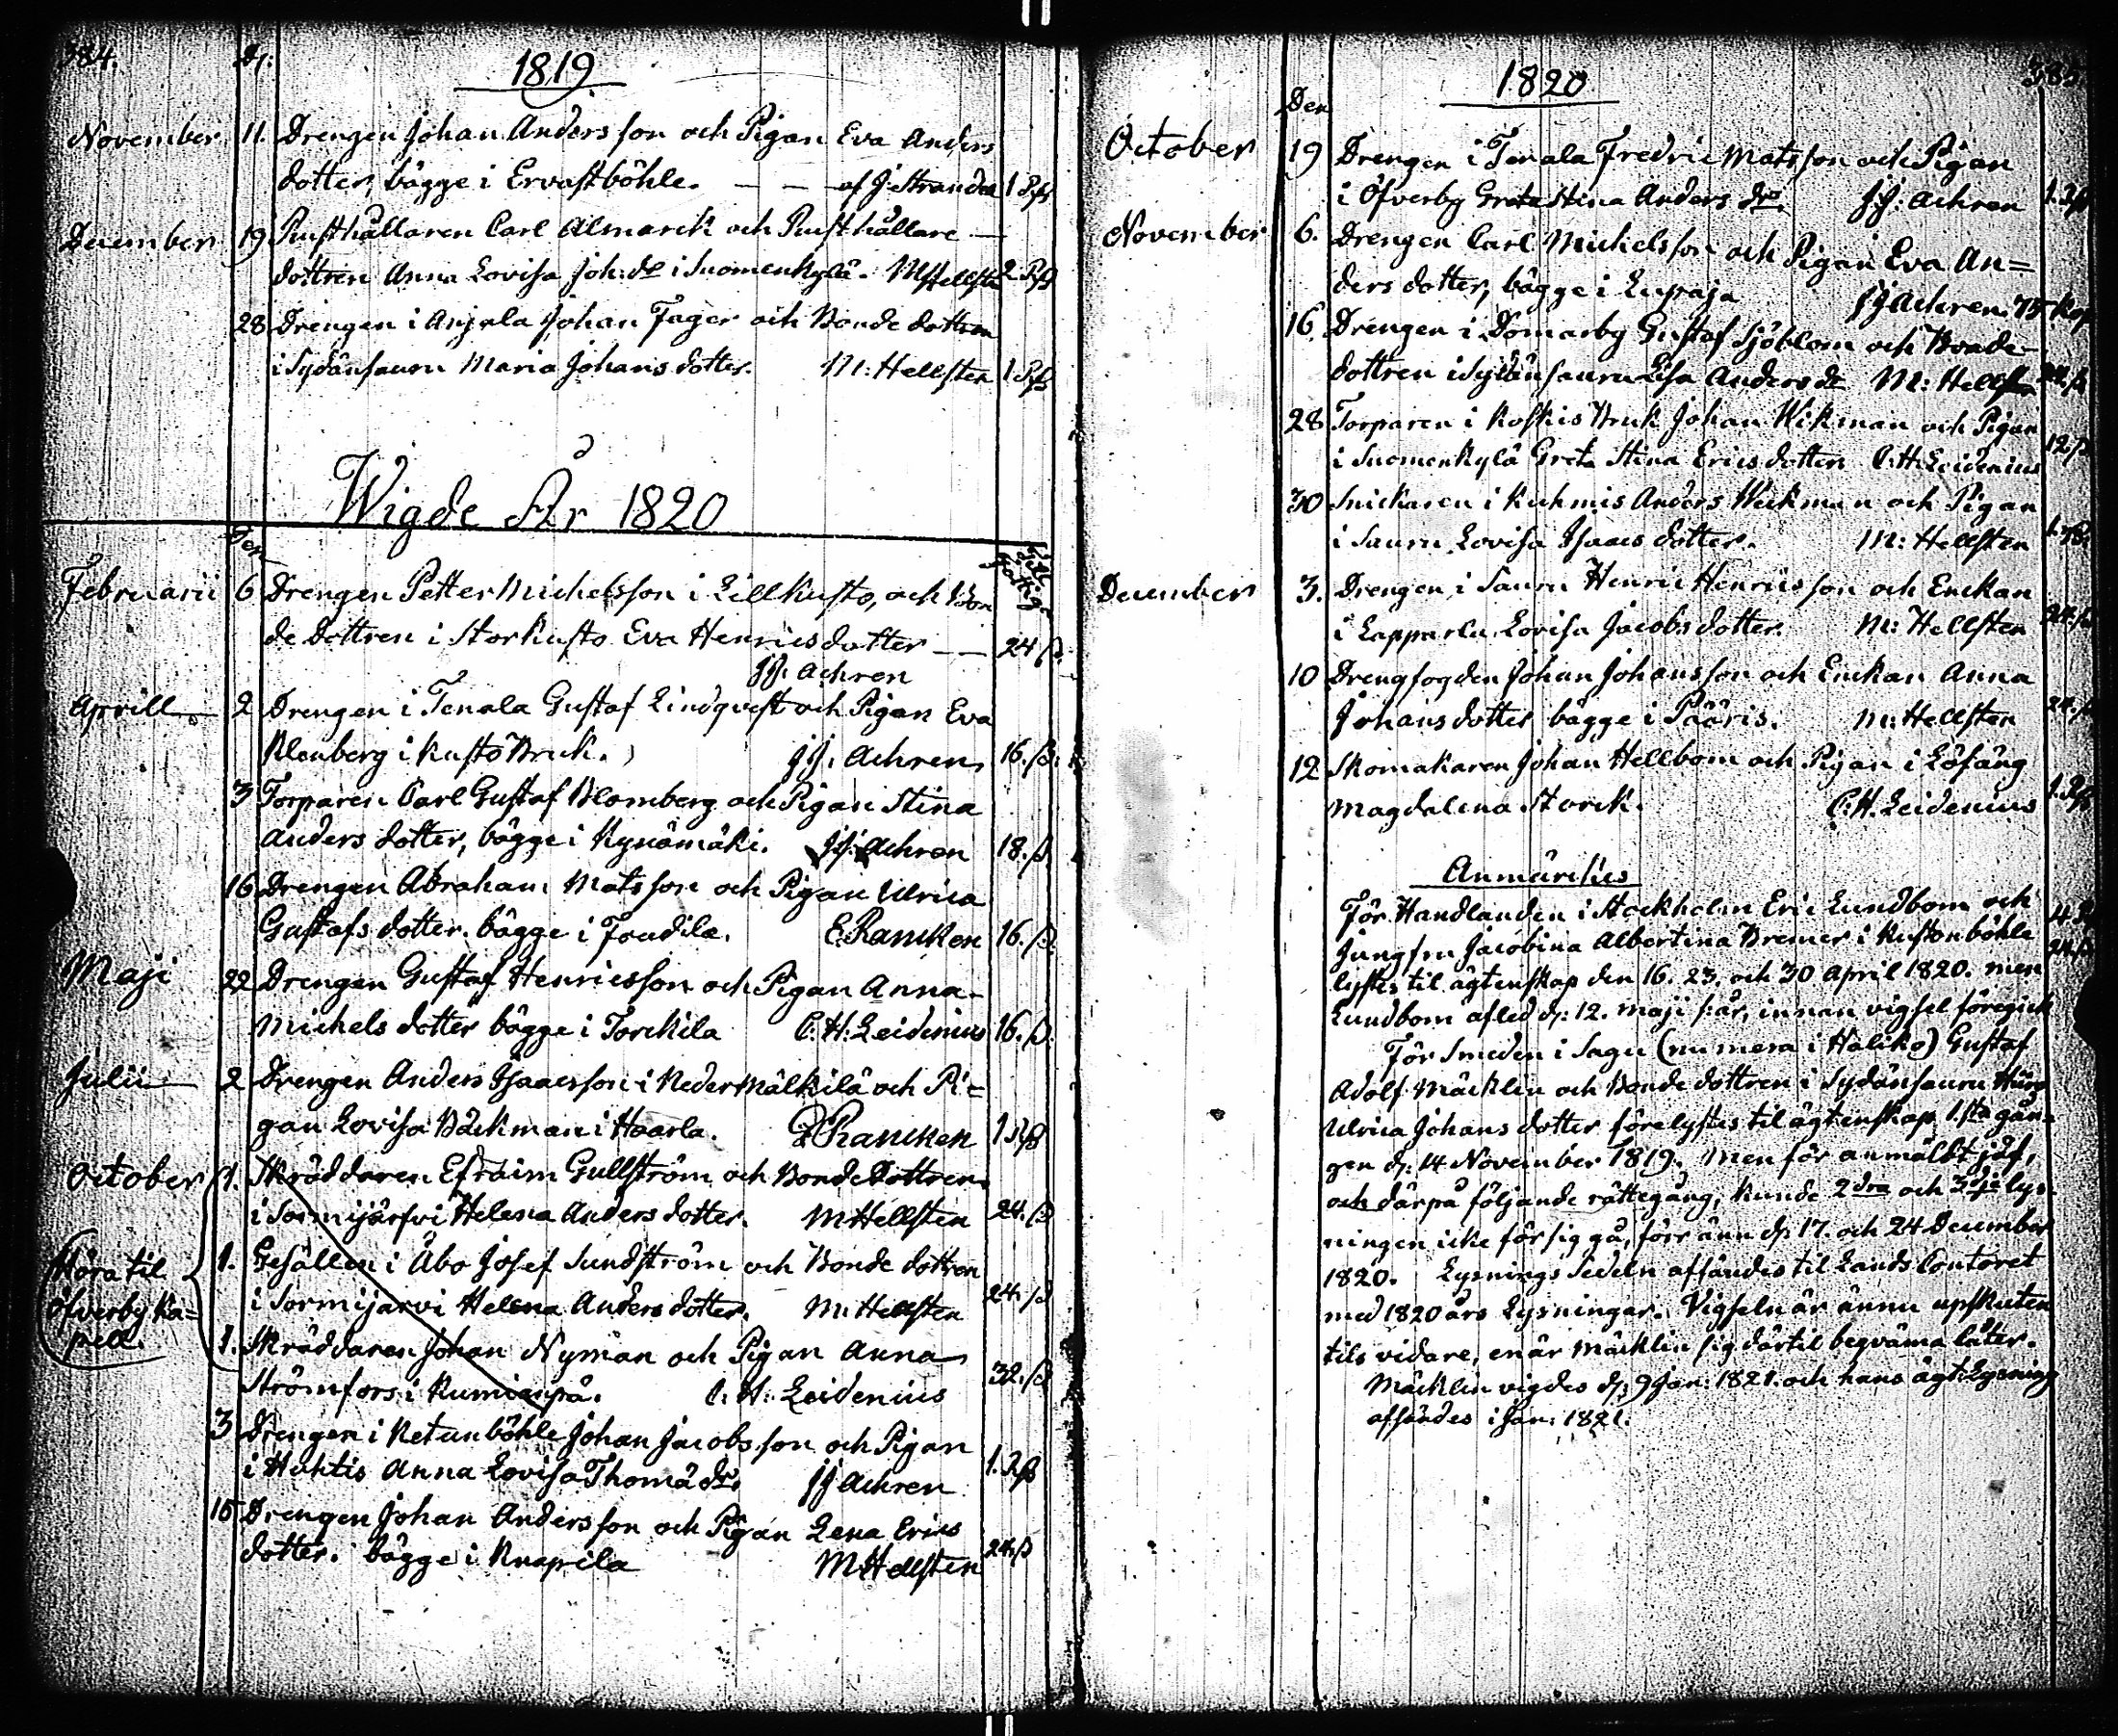 384.
D:
1819.
November 11. Drengen Johan Andersson och Pigan Eva Anders
dotter, bägge i Ervastböhle. — — af J. Strandell 1 Rß
December 19 Rusthållaren Carl Almark och Rusthållare—
dottren Anna Lovisa Joh: dr i Suomenkylä. M Hellsten 2 Rß
28 Drengen i Anjala Johan Fager och Bonde dottren
i Sydänsauru Maria Johans dotter. M: Hellsten 1 Rß
Wigde År 1820
Den
till fattige
Februarii 6 Drengen Petter Michelsson i Lillkusto, och Bon
de dottren i Storkusto Eva Henrics dotter — — 24 ß.
JJ. Achren
Aprill 2 Drengen i Tenala Gustaf Lindqvist och Pigan Eva
Klenberg i Kusto Bruk. JJ. Achren 16. ß.
3 Torparen Carl Gustaf Blomberg och Pigan Stina
Anders dotter, bägge i Kynämäki. JJ: Achren 18. ß
16 Drengen Abraham Matsson och Pigan Ulrica
Gustafs dotter. bägge i Toudila. E. Rancken 16. ß.
Maji 22 Drengen Gustaf Henricsson och Pigan Anna-
Michels dotter bägge i Torckila C. H: Leidenius 16. ß.
Julii 2 Drengen Anders Isaacsson i Neder Mälkilä och Pi=
gan Lovisa Bäckman i Haarla. E Rancken 1 Rß
October 1. Skräddaren Efraim Gullström och Bonde Dottren
i Sormijärfvi Helena Anders dotter. M Hellsten 24. ß
Höra til
öfverby Ka=
pell.
1. Gesällen i Åbo Josef Sundström och Bonde dottren
i Sormijärvi Helena Anders dotter. M. Hellsten 24. ß
1. Skräddaren Johan Nyman och Pigan Anna
Strömfors i Rumianpä. C. H: Leidenius 32. ß
3 Drengen i Ketunböhle Johan Jacobsson och Pigan
i Huhtis Anna Lovisa Thomä dr. JJ Achren 1. Rß
15 Drengen Johan Andersson och Pigan Lena Erics
dotter. bägge i Knapila M Hellsten 24. ß
385
1820
Den
October 19 Drengen i Tenala Fredric Matsson och Pigan
i Öfverby Greta Stina Anders dr. JJ: Achren 1. Rß
November 6. Drengen Carl Michelsson och Pigan Eva An=
ders dotter, bägge i Lupaja JJ Achren. 75 kop
16. Drengen i Domarby Gustaf Sjöblom och Bonde-
dottren i Sydänsauru Lisa Anders dr M: Hellsten 24. ß
28 Torparen i Koskis Bruk Johan Wikman och Pigan
i Suomenkylä Greta Stina Erics dotter C. H. Leidenius 12 ß
30 Snickaren i Kuhmis Anders Weckman och Pigan
i Sauru Lovisa Isaacs dotter. M: Hellsten 1. Rß.
December 3. Drengen i Sauru Henric Henricsson och Enckan
i Lapparla Lovisa Jacobs dotter. M: Hellsten 24. ß
10 Drengfogden Johan Johansson och Enckan Anna
Johans dotter bägge i Pääris. M: Hellsten 24. ß
12 Skomakaren Johan Hellbom och Pigan i Löfäng
Magdalena Storck. C. H. Leidenius 1. Rß
Anmärckes
För Handlanden i Stockholm Eric Lundbom och
Jungfru Jacobina Albertina Bremer i Kustonböhle 4 R 24 ß
lystes til ägtenskap den 16. 23. och 30 April 1820. men
Lundbom afled d: 12. Maji s: år, innan vigsel föregick
För Smeden i Sagu (numera i Haliko) Gustaf
Adolf Mäcklin och Bonde dottren i Sydänsauru Hurp
Ulrica Johans dotter förelystes til ägtenskap 1sta gån-
gen d: 14 November 1819. Men för anmäldt jäf,
och därpå följande rättegång, kunde 2dra och 3dje lys-
ningen icke försiggå, förr änn d: 17. och 24 December
1820. Lysnings Sedeln afsändes til Lands Contoret
med 1820 års Lysningar. Vigseln är ännu upskuten
tils vidare, enär Mäcklin sig därtil beqväma låter.
Mäcklin vigdes d: 9 Jan: 1821. och hans ägt: Lysning
afsändes i Jan: 1821.